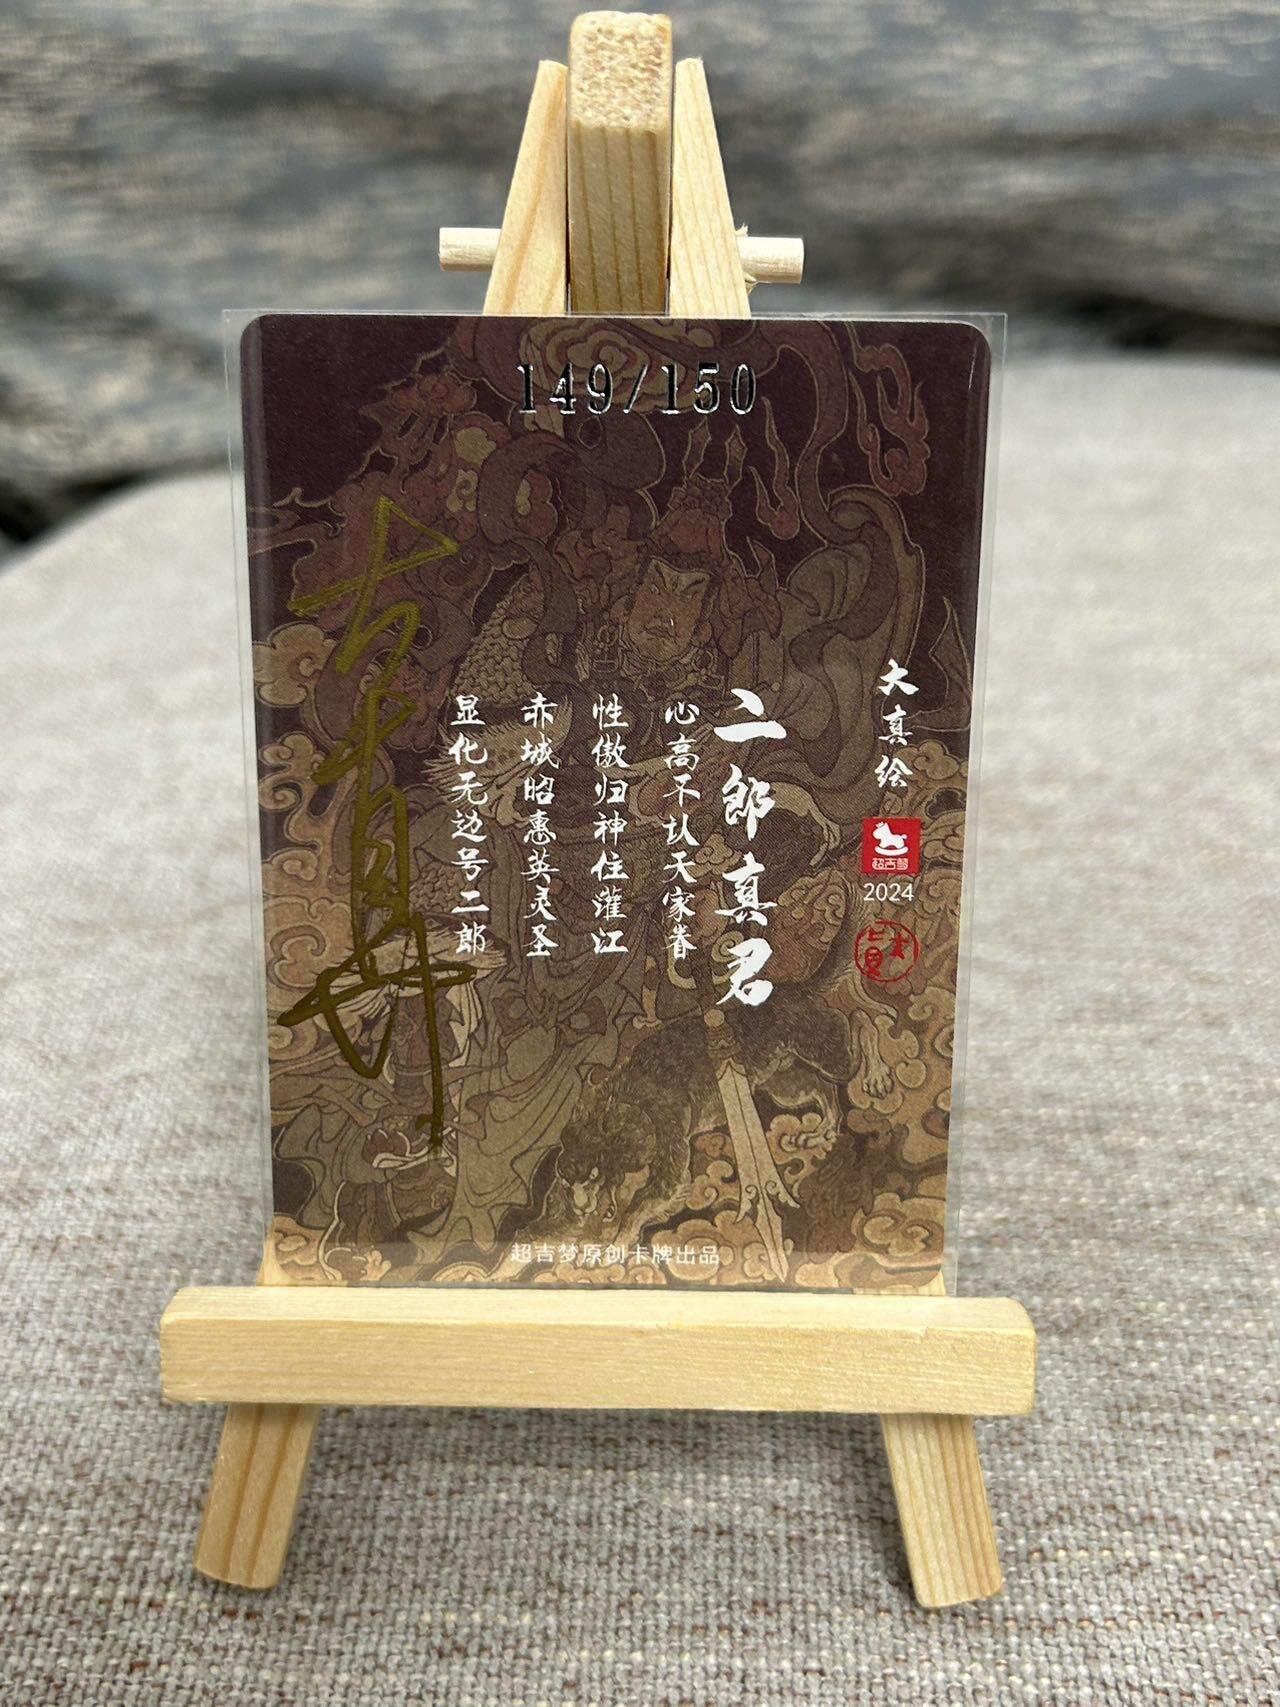 149/150
大真绘
超吉梦
2024
二郎真君
心高不认天家眷
性傲归神住灌江
赤城昭惠英灵圣
显化无边号二郎
超吉梦原创卡牌出品